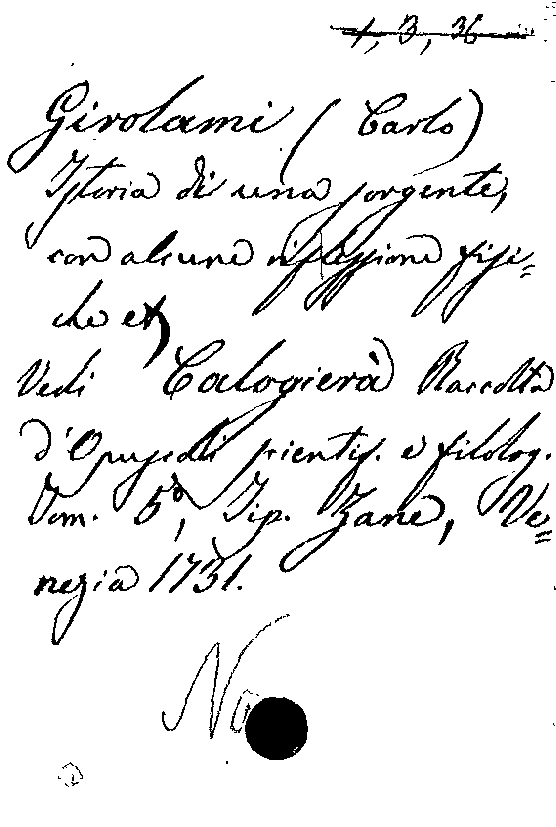 1, 3, 36
Girolami (Carlo)
Istoria di una sorgente,
con alcune riflessione fisi=
che etc
Vedi Calogierà Raccolta
d'Opuscoli scientif. e filolog.
Tom. 5º, Tip. Zane, Ve=
nezia 1731.
No